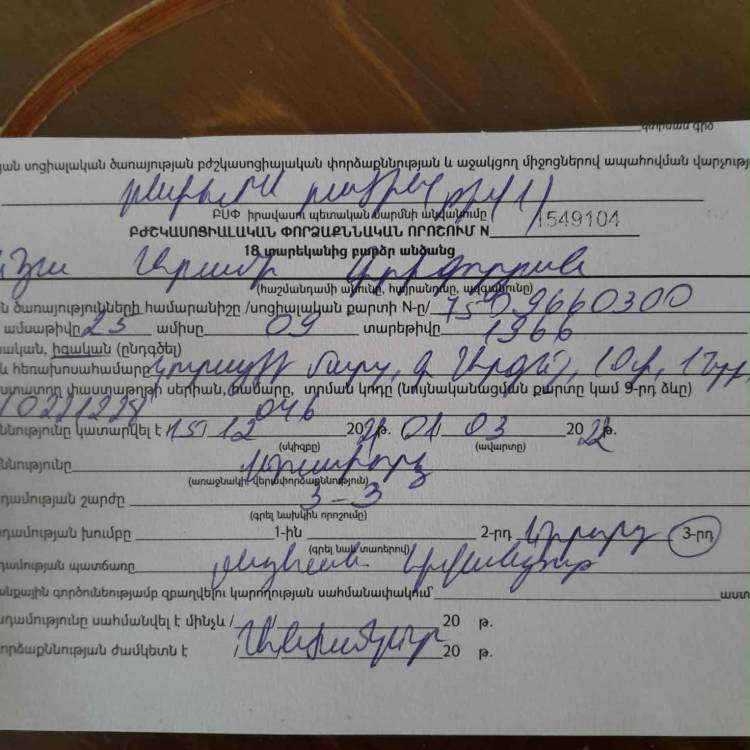 կտրման գիծ
կան սոցիալական ծառայության բժշկասոցիալական փորձաքննության և աջակցող միջոցներով ապահովման վարչություն
ԲՍՓ իրավասու պետական մարմնի անվանումը
ԲԺՇԿԱՍՈՑԻԱԼԱԿԱՆ ՓՈՐՁԱՔՆՆԱԿԱՆ ՈՐՈՇՈՒՄ N 1549104
18 տարեկանից բարձր անձանց
Արամի Գրիգորյան
(հաշմանդամի անունը, հայրանունը, ազգանունը)
ն ծառայությունների համարանիշը /սոցիալական քարտի N-ը/ 7509660300
ամսաթիվը 25 ամիսը 09 տարեթիվը 1966
ական, իգական (ընդգծել)
և հեռախոսահամարը մարզ, գ.
ստատող փաստաթղթի սերիան, համարը, տրման կոդը (նույնականացման քարտը կամ 9-րդ ձևը)
10221228 046
ննությունը կատարվել է 15 12 2021թ. 01 03 2022թ.
(սկիզբը) (ավարտը)
ննությունը
(առաջնակի, վերափորձաքննություն)
դամության շարժը 3-3
(գրել նախկին որոշումը)
դամության խումբը 1-ին 2-րդ երրորդ 3-րդ
(գրել նաև տառերով)
դամության պատճառը հիվանդութ
անքային գործունեությամբ զբաղվելու կարողության սահմանափակում աստ
դամությունը սահմանվել է մինչև / / 20 թ.
որձաքննության ժամկետն է / Անժամկետ 20 թ.